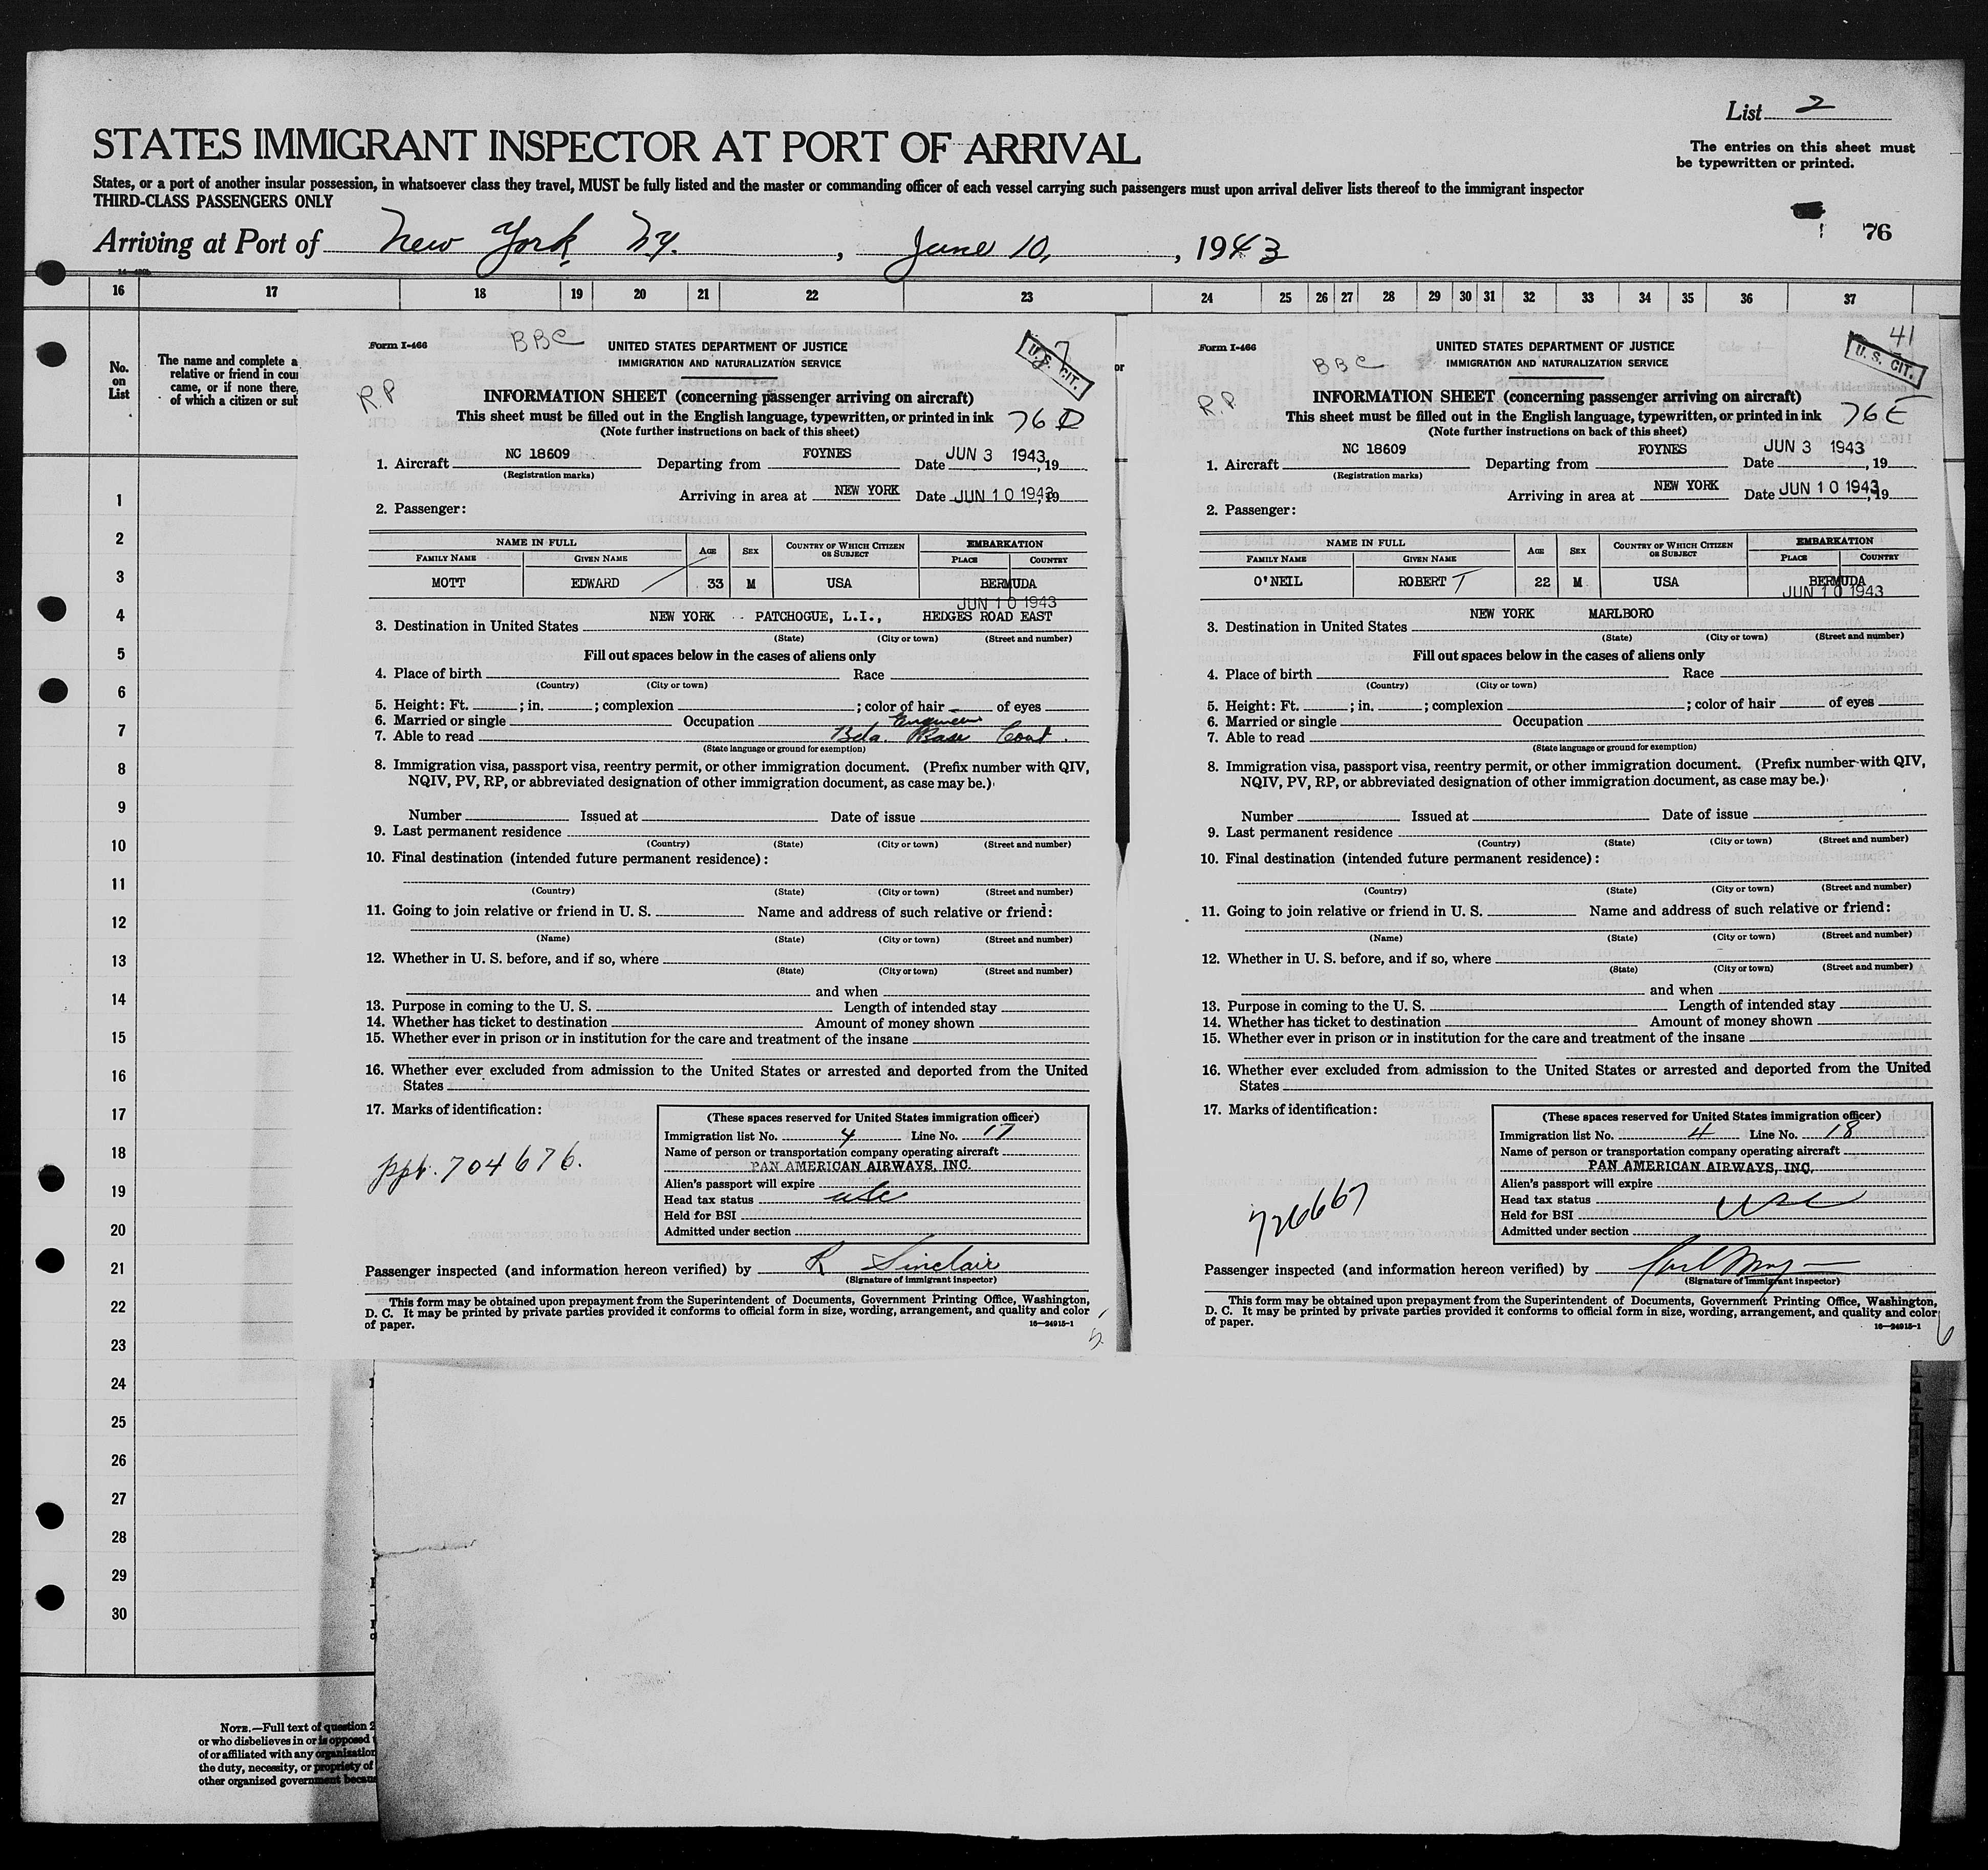 List 2
STATES IMMIGRANT INSPECTOR AT PORT OF ARRIVAL
The entries on this sheet must
be typewritten or printed.
States, or a port of another insular possession, in whatsoever class they travel, MUST be fully listed and the master or commanding officer of each vessel carrying such passengers must upon arrival deliver lists thereof to the immigrant inspector
THIRD-CLASS PASSENGERS ONLY
76
Arriving at Port of New York N.Y. , June 10, , 1943
16 17 18 19 20 21 22 23 24 25 26 27 28 29 30 31 32 33 34 35 36 37
No.
on
List
The name and complete a
relative or friend in cou
came, or if none there,
of which a citizen or sub
1
2
3
4
5
6
7
8
9
10
11
12
13
14
15
16
17
18
19
20
21
22
23
24
25
26
27
28
29
30
NOTE.—Full text of question 2
or who disbelieves in or is opposed
of or affiliated with any organization
the duty, necessity, or propriety of
other organized government because
Form I-466
BBC
UNITED STATES DEPARTMENT OF JUSTICE
U. S. CIT.
IMMIGRATION AND NATURALIZATION SERVICE
R.P
INFORMATION SHEET (concerning passenger arriving on aircraft)
This sheet must be filled out in the English language, typewritten, or printed in ink
76 D
(Note further instructions on back of this sheet)
1. Aircraft NC 18609 Departing from FOYNES Date JUN 3 1943, 19
(Registration marks)
Arriving in area at NEW YORK Date JUN 10 1943, 19
2. Passenger:
NAME IN FULL AGE SEX COUNTRY OF WHICH CITIZEN OR SUBJECT EMBARKATION
FAMILY NAME GIVEN NAME PLACE COUNTRY
MOTT EDWARD 33 M USA BERMUDA
JUN 10 1943
3. Destination in United States NEW YORK PATCHOGUE, L.I., HEDGES ROAD EAST
(State) (City or town) (Street and number)
Fill out spaces below in the cases of aliens only
4. Place of birth Race
(Country) (City or town)
5. Height: Ft. ; in. ; complexion ; color of hair of eyes
6. Married or single Occupation Engineer
7. Able to read Bda. Base Cont.
(State language or ground for exemption)
8. Immigration visa, passport visa, reentry permit, or other immigration document. (Prefix number with QIV,
NQIV, PV, RP, or abbreviated designation of other immigration document, as case may be.)
Number Issued at Date of issue
9. Last permanent residence
(Country) (State) (City or town) (Street and number)
10. Final destination (intended future permanent residence):
(Country) (State) (City or town) (Street and number)
11. Going to join relative or friend in U. S. Name and address of such relative or friend:
(Name) (State) (City or town) (Street and number)
12. Whether in U. S. before, and if so, where
(State) (City or town) (Street and number)
and when
13. Purpose in coming to the U. S. Length of intended stay
14. Whether has ticket to destination Amount of money shown
15. Whether ever in prison or in institution for the care and treatment of the insane
16. Whether ever excluded from admission to the United States or arrested and deported from the United
States
17. Marks of identification:
ppt. 704676.
(These spaces reserved for United States immigration officer)
Immigration list No. 4 Line No. 17
Name of person or transportation company operating aircraft
PAN AMERICAN AIRWAYS, INC.
Alien's passport will expire
Head tax status usc
Held for BSI
Admitted under section
Passenger inspected (and information hereon verified) by R Sinclair
(Signature of immigrant inspector)
This form may be obtained upon prepayment from the Superintendent of Documents, Government Printing Office, Washington,
D. C. It may be printed by private parties provided it conforms to official form in size, wording, arrangement, and quality and color
of paper.
16—24915-1
5
or
Form I-466
BBC
UNITED STATES DEPARTMENT OF JUSTICE
41
U. S. CIT.
IMMIGRATION AND NATURALIZATION SERVICE
R.P
INFORMATION SHEET (concerning passenger arriving on aircraft)
This sheet must be filled out in the English language, typewritten, or printed in ink
76 E
(Note further instructions on back of this sheet)
1. Aircraft NC 18609 Departing from FOYNES Date JUN 3 1943, 19
(Registration marks)
Arriving in area at NEW YORK Date JUN 10 1943, 19
2. Passenger:
NAME IN FULL AGE SEX COUNTRY OF WHICH CITIZEN OR SUBJECT EMBARKATION
FAMILY NAME GIVEN NAME PLACE COUNTRY
O'NEIL ROBERT T 22 M USA BERMUDA
JUN 10 1943
3. Destination in United States NEW YORK MARLBORO
(State) (City or town) (Street and number)
Fill out spaces below in the cases of aliens only
4. Place of birth Race
(Country) (City or town)
5. Height: Ft. ; in. ; complexion ; color of hair of eyes
6. Married or single Occupation
7. Able to read
(State language or ground for exemption)
8. Immigration visa, passport visa, reentry permit, or other immigration document. (Prefix number with QIV,
NQIV, PV, RP, or abbreviated designation of other immigration document, as case may be.)
Number Issued at Date of issue
9. Last permanent residence
(Country) (State) (City or town) (Street and number)
10. Final destination (intended future permanent residence):
(Country) (State) (City or town) (Street and number)
11. Going to join relative or friend in U. S. Name and address of such relative or friend:
(Name) (State) (City or town) (Street and number)
12. Whether in U. S. before, and if so, where
(State) (City or town) (Street and number)
and when
13. Purpose in coming to the U. S. Length of intended stay
14. Whether has ticket to destination Amount of money shown
15. Whether ever in prison or in institution for the care and treatment of the insane
16. Whether ever excluded from admission to the United States or arrested and deported from the United
States
17. Marks of identification:
726667
(These spaces reserved for United States immigration officer)
Immigration list No. 4 Line No. 18
Name of person or transportation company operating aircraft
PAN AMERICAN AIRWAYS, INC.
Alien's passport will expire
Head tax status usc
Held for BSI
Admitted under section
Passenger inspected (and information hereon verified) by
(Signature of immigrant inspector)
This form may be obtained upon prepayment from the Superintendent of Documents, Government Printing Office, Washington,
D. C. It may be printed by private parties provided it conforms to official form in size, wording, arrangement, and quality and color
of paper.
16—24915-1
6